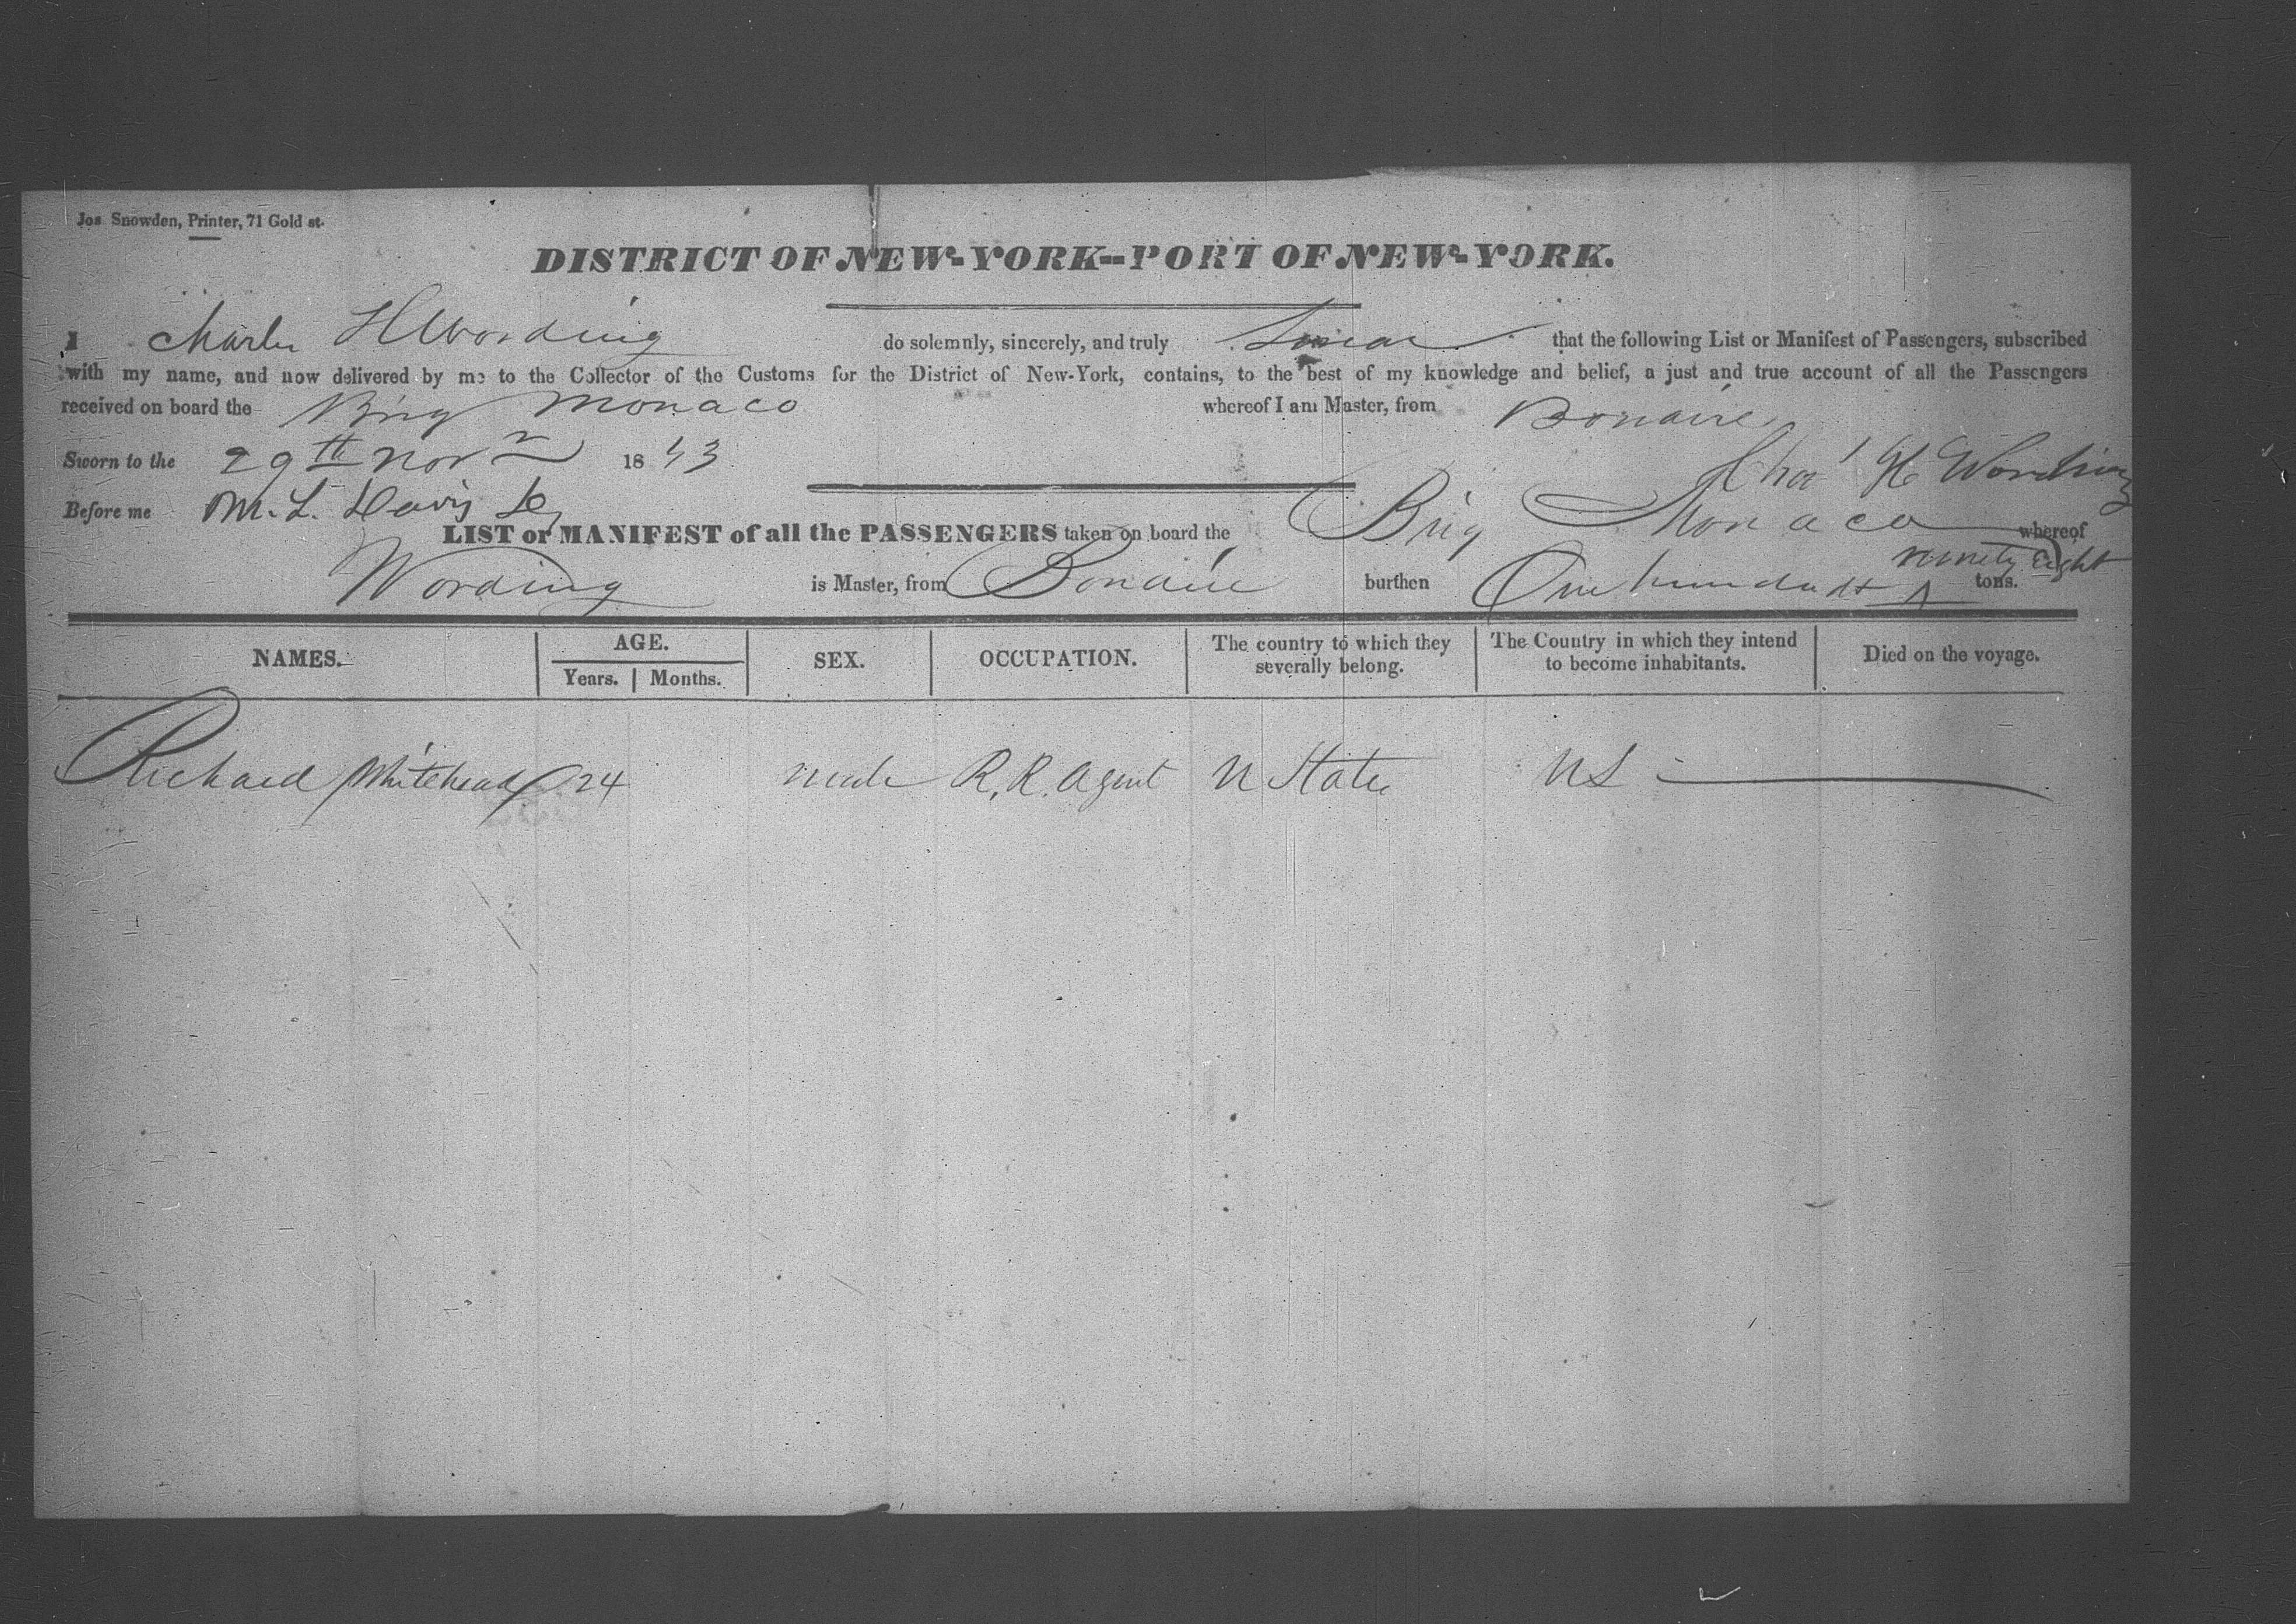 Jos Snowden, Printer, 71 Gold st.
DISTRICT OF NEW-YORK--PORT OF NEW-YORK.
I Charles H Wording do solemnly, sincerely, and truly Swear that the following List or Manifest of Passengers, subscribed
with my name, and now delivered by me to the Collector of the Customs for the District of New-York, contains, to the best of my knowledge and belief, a just and true account of all the Passengers
received on board the Brig Monaco whereof I am Master, from Bonaire
Sworn to the 29th Novr 1843 Chas H Wording
Before me M. L. Davis
LIST or MANIFEST of all the PASSENGERS taken on board the Brig Monaco whereof
Wording is Master, from Bonaire burthen One hundredt ninety Eight tons.
NAMES. AGE. SEX. OCCUPATION. The country to which they severally belong. The Country in which they intend to become inhabitants. Died on the voyage.
Years. Months.
Richard Whitehead 24 male R. R. Agent U States US